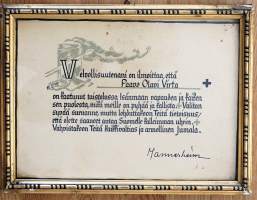 Velvollisuutenani on ilmoittaa, että
Paavo Olavi Virta
on kaatunut taistelussa isänmaan vapauden ja kaiken
sen puolesta, mikä meille on pyhää ja kallista. Valitan
syvää surunne, mutta lohduttakoon Teitä tietoisuus,
että olette saaneet antaa Suomelle kalleimman uhrin.
Vahvistakoon Teitä kaikkivaltias ja armollinen Jumala.
Mannerheim